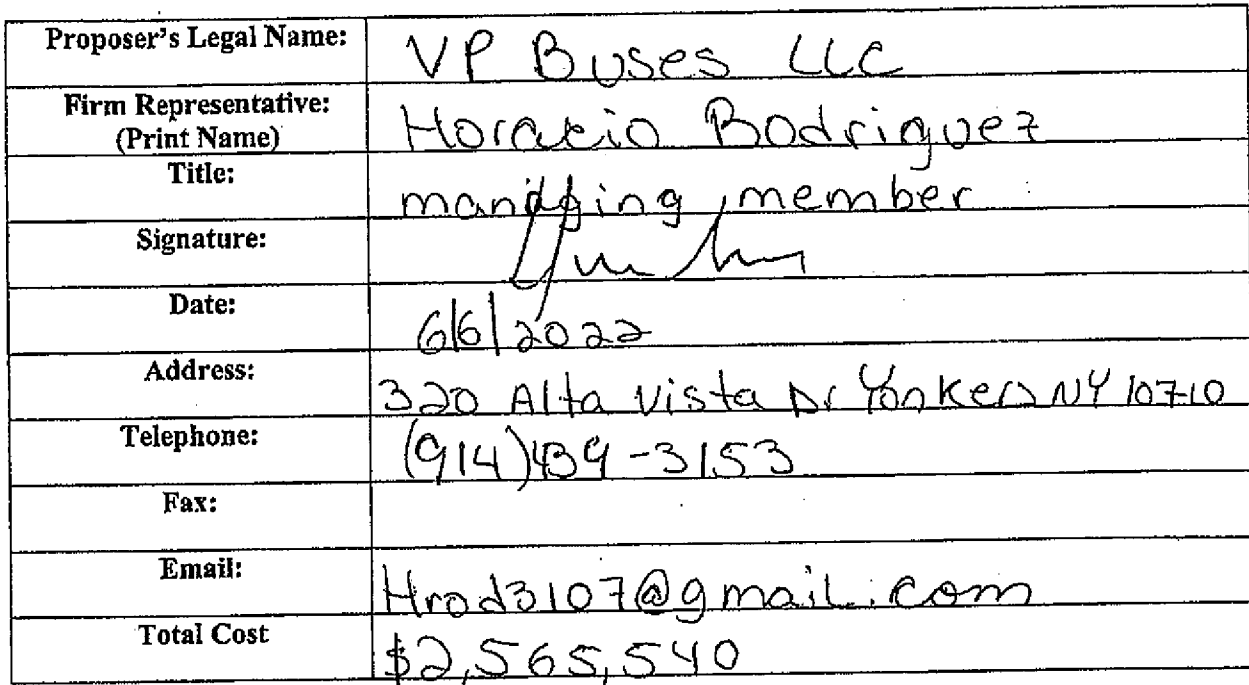 Proposer's Legal Name: VP Buses LLC
Firm Representative: (Print Name) Horacio Rodriguez
Title: managing member
Signature:
Date: 6/6/2022
Address: 320 Alta Vista Dr Yonkers NY 10710
Telephone: (914)439-3153
Fax:
Email: Hrod3107@gmail.com
Total Cost $2,565,540